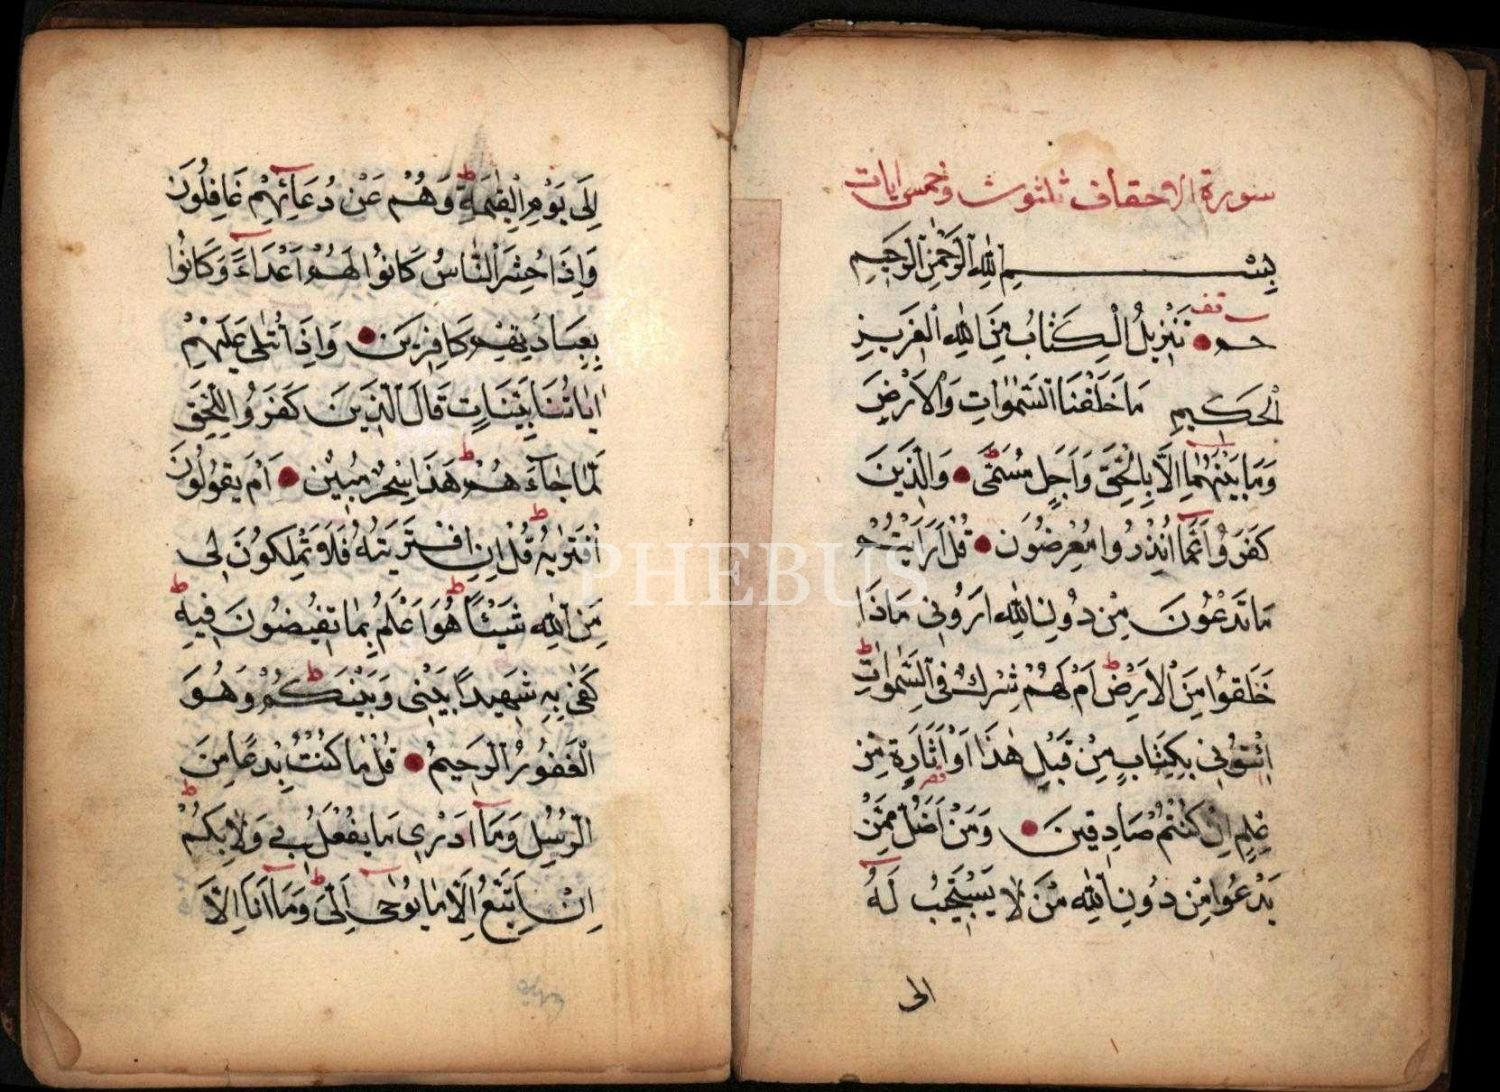 سورة الاحقاف ثلثون وخمس ايات
بِسْمِ اللهِ الرَّحْمٰنِ الرَّحِيمِ
حم تَنْزِيلُ الْكِتَابِ مِنَ اللهِ الْعَزِيزِ
قف
الْحَكِيمِ مَا خَلَقْنَا السَّمٰوَاتِ وَالْاَرْضَ
وَمَا بَيْنَهُمَا اِلَّا بِالْحَقِّ وَاَجَلٍ مُسَمًّى وَالَّذِينَ
كَفَرُوا عَمَّا اُنْذِرُوا مُعْرِضُونَ قُلْ اَرَاَيْتُمْ
مَا تَدْعُونَ مِنْ دُونِ اللهِ اَرُونِي مَاذَا
خَلَقُوا مِنَ الْاَرْضِ اَمْ لَهُمْ شِرْكٌ فِي السَّمٰوَاتِ
ط
ط
اِئْتُونِي بِكِتَابٍ مِنْ قَبْلِ هٰذَا اَوْ اَثَارَةٍ مِنْ
عِلْمٍ اِنْ كُنْتُمْ صَادِقِينَ وَمَنْ اَضَلُّ مِمَّنْ
يَدْعُوا مِنْ دُونِ اللهِ مَنْ لَا يَسْتَجِيبُ لَهُ
الى
اِلَى يَوْمِ الْقِيٰمَةِ وَهُمْ عَنْ دُعَائِهِمْ غَافِلُونَ
ط
وَاِذَا حُشِرَ النَّاسُ كَانُوا لَهُمْ اَعْدَاءً وَكَانُوا
بِعِبَادَتِهِمْ كَافِرِينَ وَاِذَا تُتْلٰى عَلَيْهِمْ
اٰيَاتُنَا بَيِّنَاتٍ قَالَ الَّذِينَ كَفَرُوا لِلْحَقِّ
لَمَّا جَاءَهُمْ هٰذَا سِحْرٌ مُبِينٌ اَمْ يَقُولُونَ
ط
افْتَرٰيهُ قُلْ اِنِ افْتَرَيْتُهُ فَلَا تَمْلِكُونَ لِي
ط
مِنَ اللهِ شَيْئًا هُوَ اَعْلَمُ بِمَا تُفِيضُونَ فِيهِ
ط
ط
كَفٰى بِهِ شَهِيدًا بَيْنِي وَبَيْنَكُمْ وَهُوَ
ط
الْغَفُورُ الرَّحِيمُ قُلْ مَا كُنْتُ بِدْعًا مِنَ
الرُّسُلِ وَمَا اَدْرِي مَا يُفْعَلُ بِي وَلَا بِكُمْ
ط
اِنْ اَتَّبِعُ اِلَّا مَا يُوحٰى اِلَيَّ وَمَا اَنَا اِلَّا
ط
PHEBUS